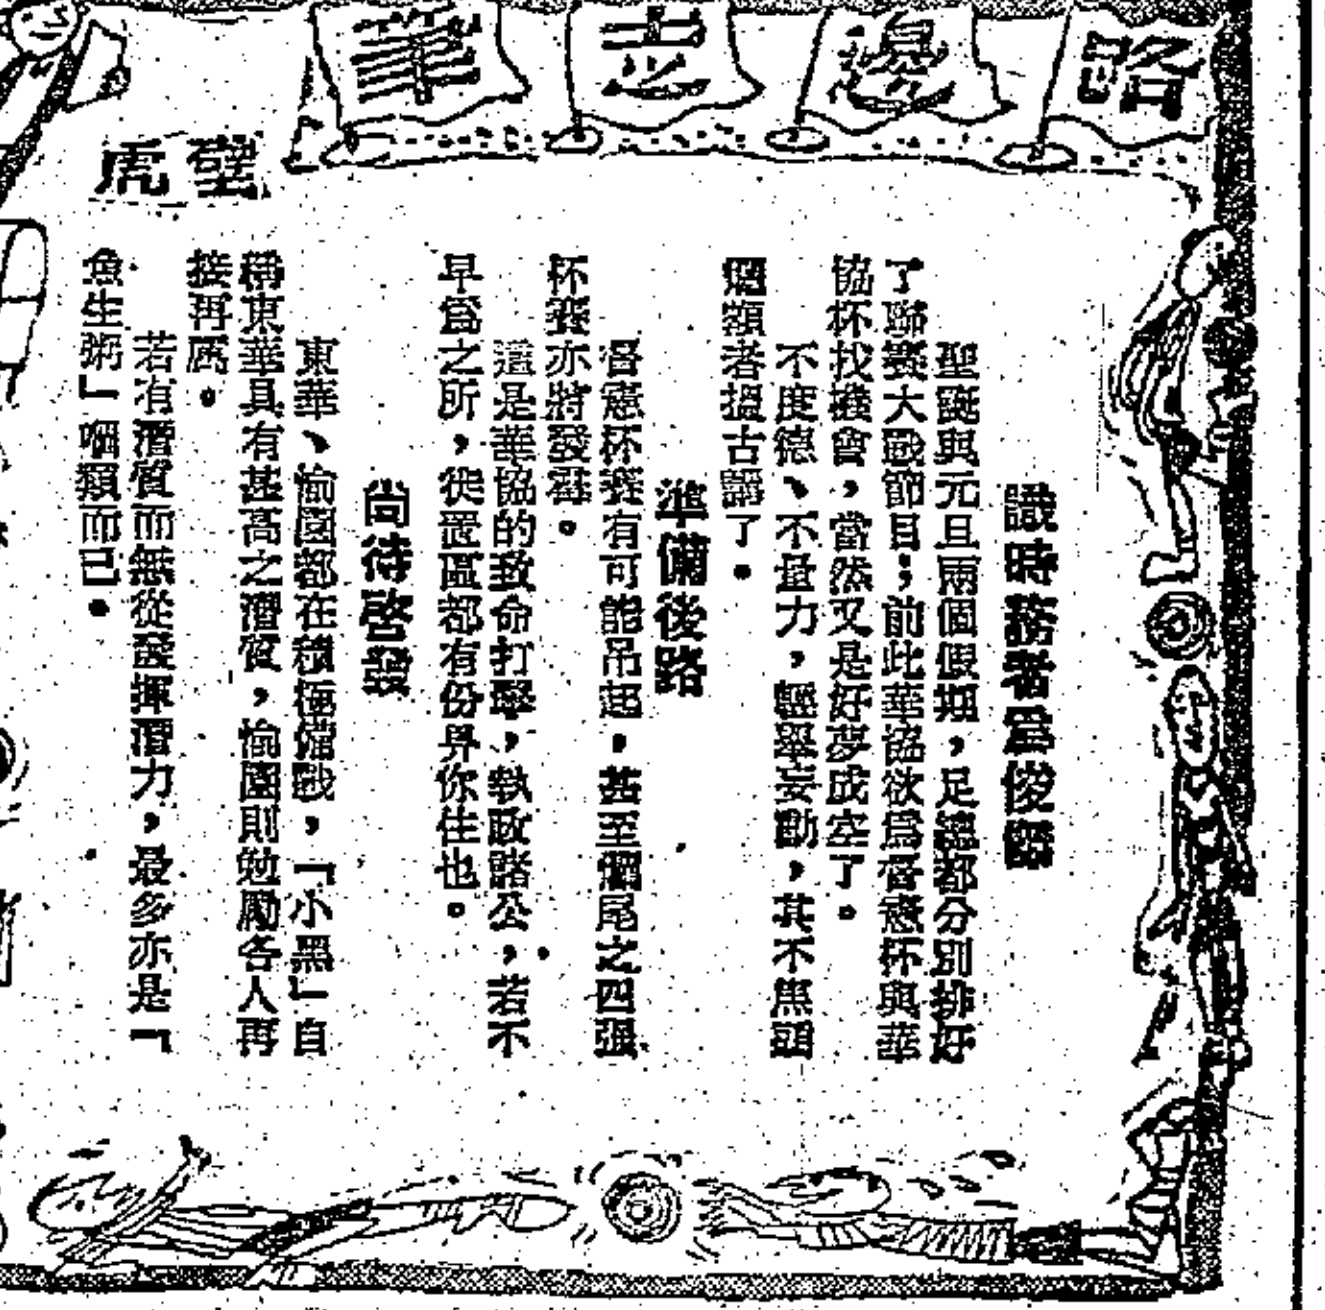 路邊走筆
壁虎
識時務者爲俊傑
聖誕與元旦兩個假期，足總都分別排好
了聯賽大戰節目；前此華協欲爲督憲杯與華
協杯找機會，當然又是好夢成空了。
不度德、不量力，輕舉妄動，其不焦頭
爛額者搵古講了。
準備後路
督憲杯賽有可能吊起，甚至彌尾之四强
杯賽亦將發霉。
這是華協的致命打擊，執政諸公，若不
早爲之所，徙置區都有份畀你住也。
尚待啓發
東華、愉園都在積極備戰，「小黑」自
稱東華具有甚高之潛質，愉園則勉勵各人再
接再厲。
若有潛質而無從發揮潛力，最多亦是「
魚生粥」嗰類而已。